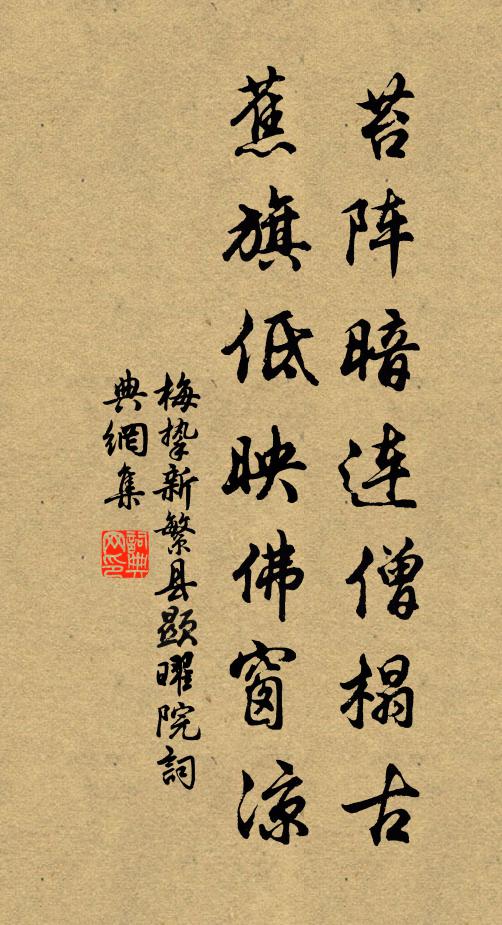 苔阵暗连僧榻古
蕉旗低映佛窗凉
梅挚新繁县顕曜院詞
典網集
詞典网印